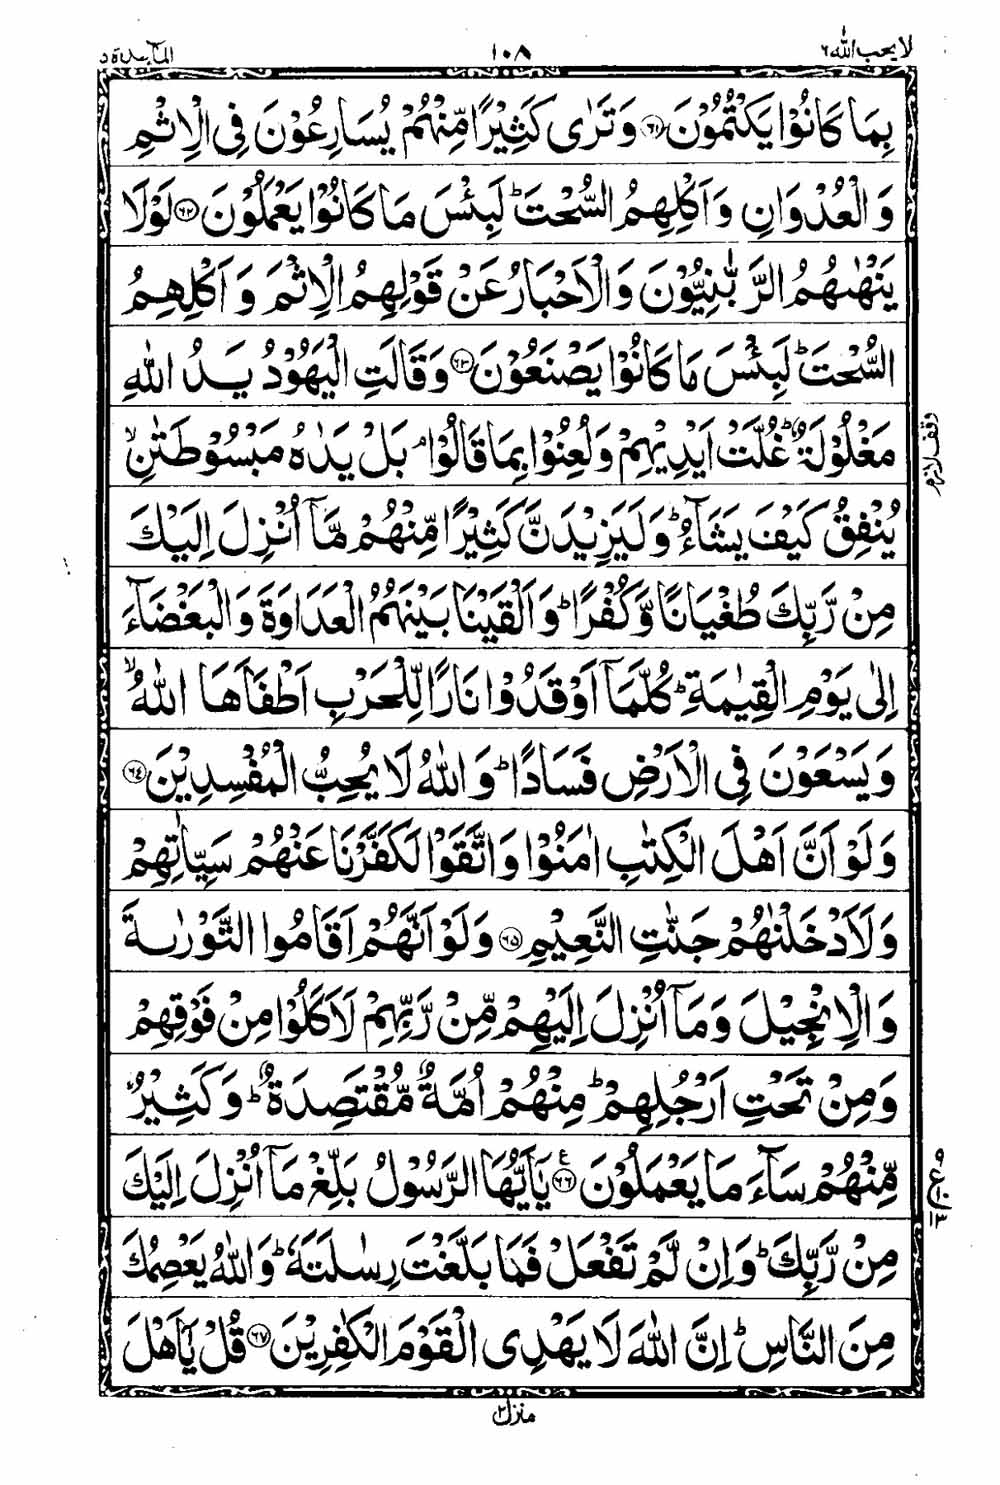 لا یحب الله ٦
١٠٨
المآىدة ٥
بِمَا كَانُوْا يَكْتُمُوْنَ ﴿٦١﴾ وَتَرٰى كَثِيْرًا مِّنْهُمْ يُسَارِعُوْنَ فِى الْاِثْمِ
وَالْعُدْوَانِ وَاَكْلِهِمُ السُّحْتَ ؕ لَبِئْسَ مَا كَانُوْا يَعْمَلُوْنَ ﴿٦٢﴾ لَوْلَا
يَنْهٰىهُمُ الرَّبّٰنِيُّوْنَ وَالْاَحْبَارُ عَنْ قَوْلِهِمُ الْاِثْمَ وَاَكْلِهِمُ
السُّحْتَ ؕ لَبِئْسَ مَا كَانُوْا يَصْنَعُوْنَ ﴿٦٣﴾ وَقَالَتِ الْيَهُوْدُ يَدُ اللّٰهِ
مَغْلُوْلَةٌ ؕ غُلَّتْ اَيْدِيْهِمْ وَلُعِنُوْا بِمَا قَالُوْا ۘ بَلْ يَدٰهُ مَبْسُوْطَتٰنِ ۙ
وقف لازم
يُنْفِقُ كَيْفَ يَشَآءُ ؕ وَلَيَزِيْدَنَّ كَثِيْرًا مِّنْهُمْ مَّاۤ اُنْزِلَ اِلَيْكَ
مِنْ رَّبِّكَ طُغْيَانًا وَّكُفْرًا ؕ وَاَلْقَيْنَا بَيْنَهُمُ الْعَدَاوَةَ وَالْبَغْضَآءَ
اِلٰى يَوْمِ الْقِيٰمَةِ ؕ كُلَّمَاۤ اَوْقَدُوْا نَارًا لِّلْحَرْبِ اَطْفَاَهَا اللّٰهُ ۙ
وَيَسْعَوْنَ فِى الْاَرْضِ فَسَادًا ؕ وَاللّٰهُ لَا يُحِبُّ الْمُفْسِدِيْنَ ﴿٦٤﴾
وَلَوْ اَنَّ اَهْلَ الْكِتٰبِ اٰمَنُوْا وَاتَّقَوْا لَكَفَّرْنَا عَنْهُمْ سَيِّاٰتِهِمْ
وَلَاَدْخَلْنٰهُمْ جَنّٰتِ النَّعِيْمِ ﴿٦٥﴾ وَلَوْ اَنَّهُمْ اَقَامُوا التَّوْرٰىةَ
وَالْاِنْجِيْلَ وَمَاۤ اُنْزِلَ اِلَيْهِمْ مِّنْ رَّبِّهِمْ لَاَكَلُوْا مِنْ فَوْقِهِمْ
وَمِنْ تَحْتِ اَرْجُلِهِمْ ؕ مِنْهُمْ اُمَّةٌ مُّقْتَصِدَةٌ ؕ وَكَثِيْرٌ
مِّنْهُمْ سَآءَ مَا يَعْمَلُوْنَ ﴿٦٦﴾ ع يٰۤاَيُّهَا الرَّسُوْلُ بَلِّغْ مَاۤ اُنْزِلَ اِلَيْكَ
مِنْ رَّبِّكَ ؕ وَاِنْ لَّمْ تَفْعَلْ فَمَا بَلَّغْتَ رِسٰلَتَهٗ ؕ وَاللّٰهُ يَعْصِمُكَ
مِنَ النَّاسِ ؕ اِنَّ اللّٰهَ لَا يَهْدِى الْقَوْمَ الْكٰفِرِيْنَ ﴿٦٧﴾ قُلْ يٰۤاَهْلَ
منزل ٢